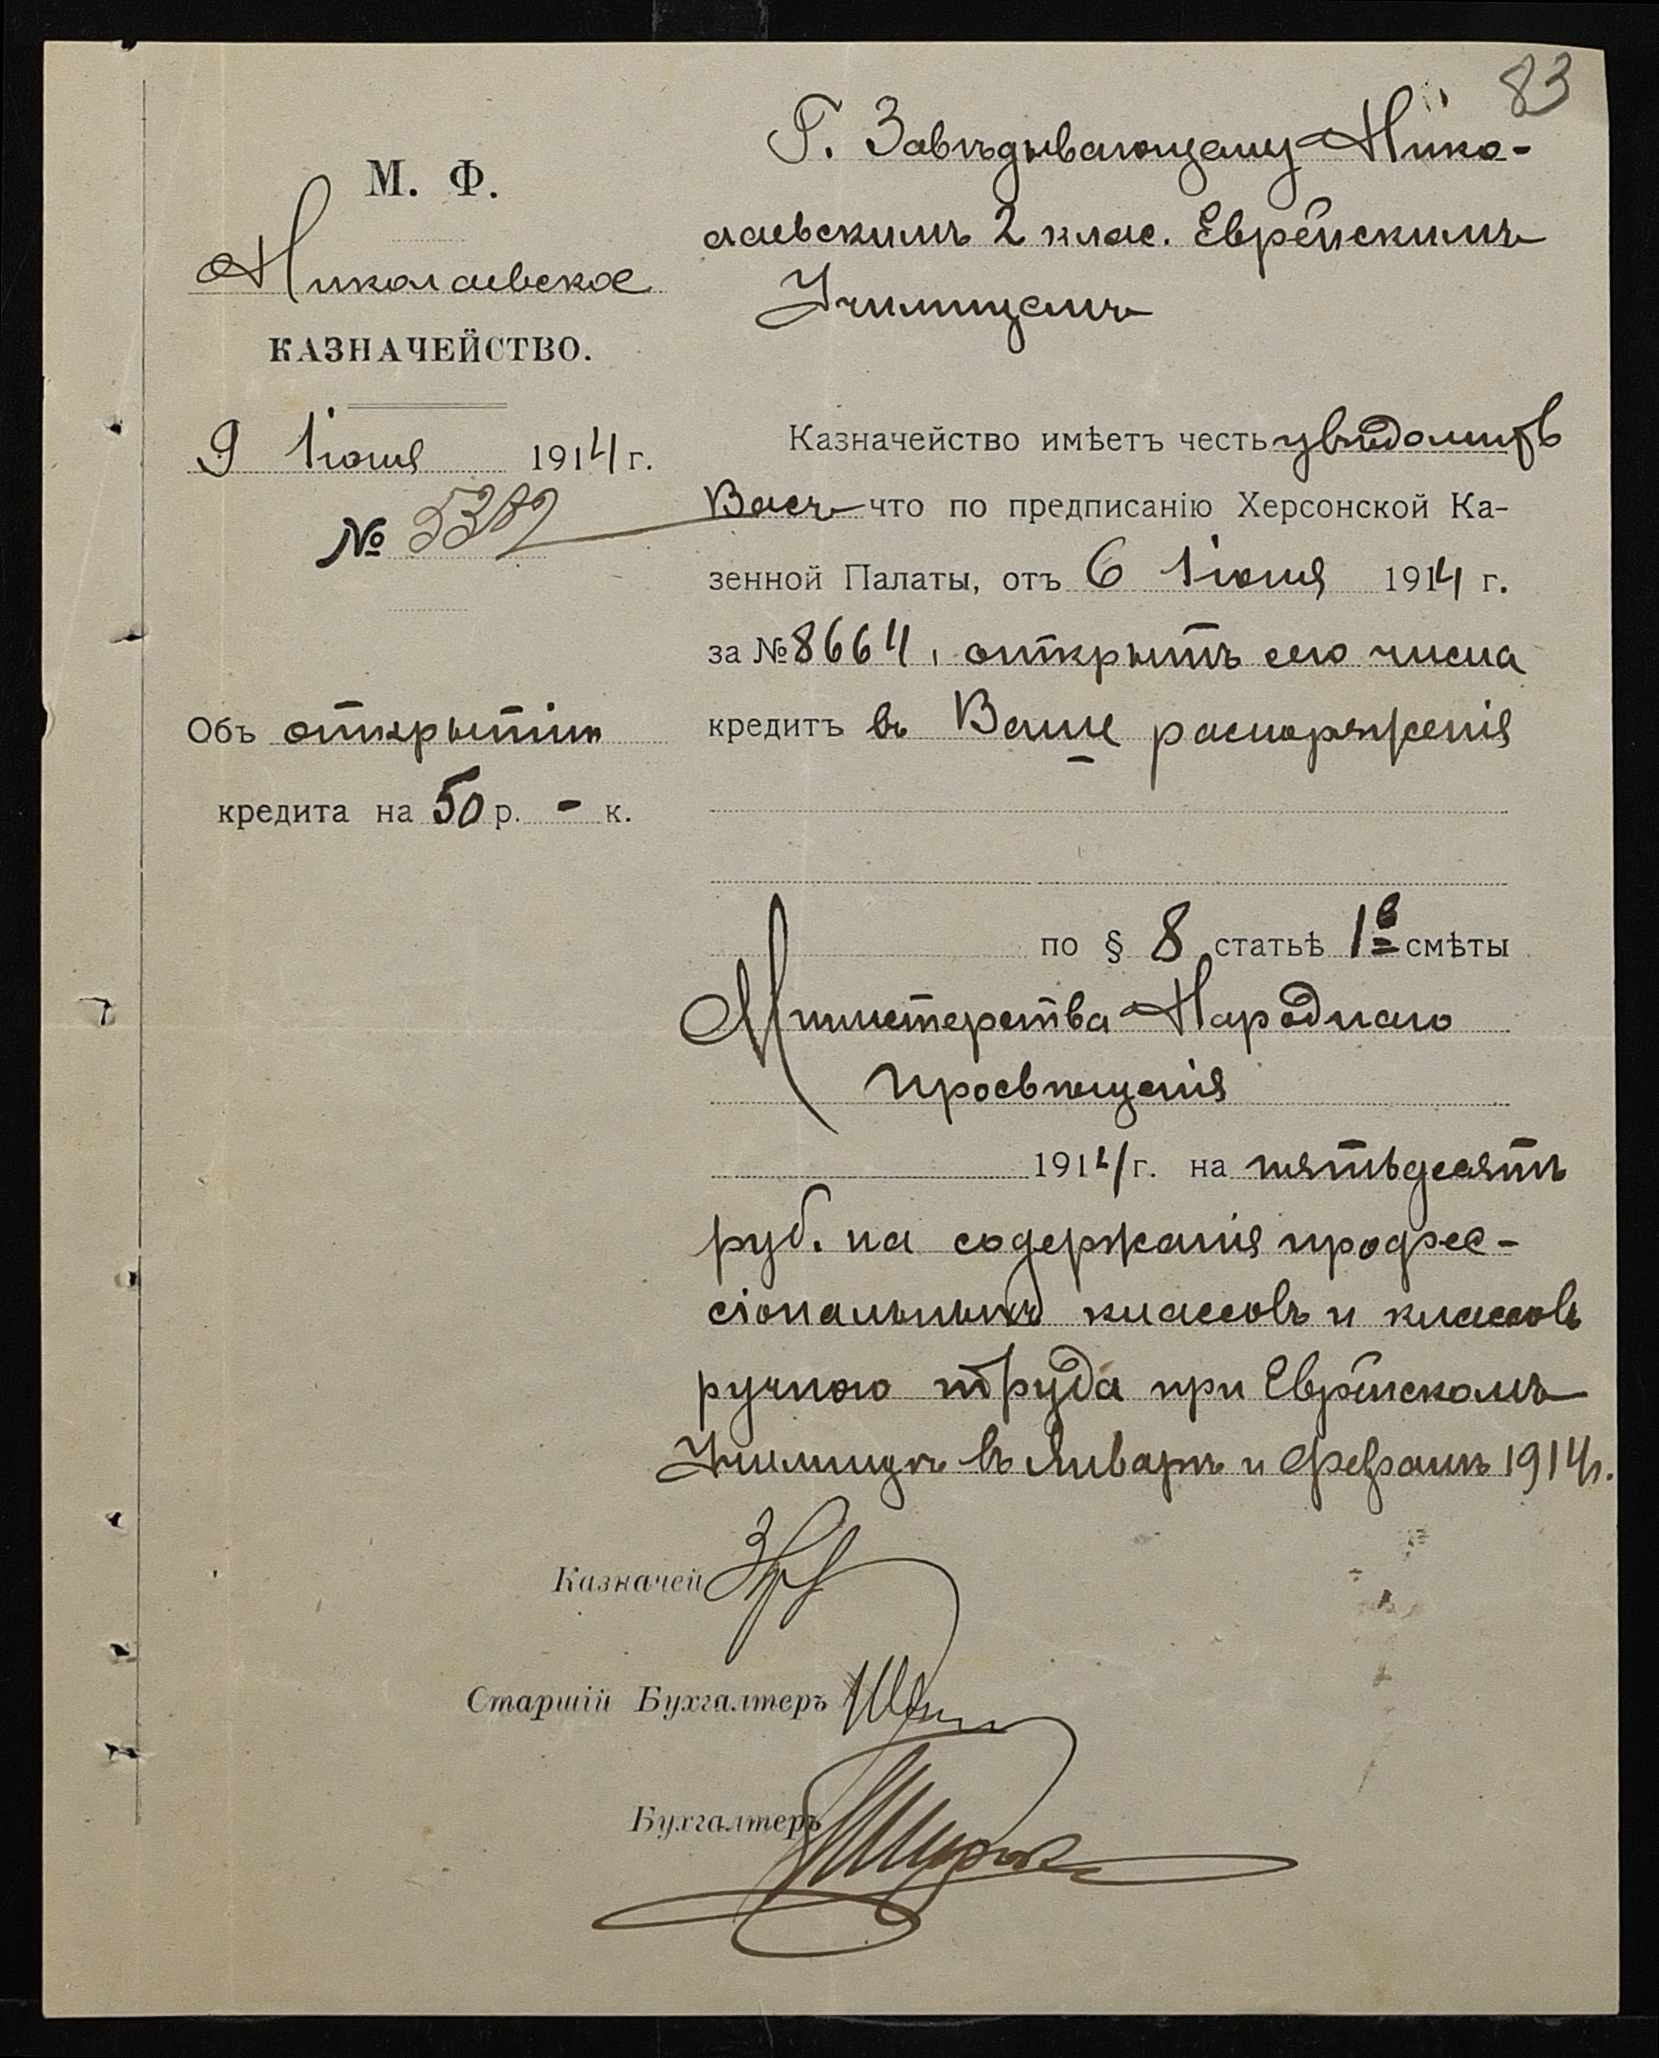 83
М. Ф.
Николаевское
КАЗНАЧЕЙСТВО.
9 Iюня 1914 г.
№ 5382
Объ открытiи
кредита на 50 р. - к.
Г. Завѣдывающему Нико-
лаевскимъ 2 клас. Еврейскимъ
Училищемъ
Казначейство имѣетъ честь увѣдомить
Васъ что по предписанію Херсонской Ка-
зенной Палаты, отъ 6 Iюня 1914 г.
за № 8664, открытъ сего числа
кредитъ въ Ваше распоряженiя
по § 8 статьѣ 1в смѣты
Министерства Народнаго
просвѣщенiя
1914 г. на пятьдесятъ
руб. на содержанiя профес-
сiональныхъ классовъ и классовъ
ручного труда при Еврейскомъ
Училищѣ въ Январѣ и Февралѣ 1914 г.
Казначей
Старшій Бухгалтеръ
Бухгалтеръ